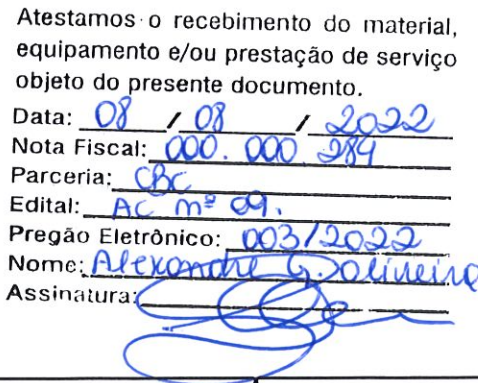 Atestamos o recebimento do material,
equipamento e/ou prestação de serviço
objeto do presente documento.
Data: 08 / 08 / 2022
Nota Fiscal: 000. 000 284
Parceria: CBC
Edital: AC nº 09.
Pregão Eletrônico: 003/2022
Nome: Alexandre G. Oliveira
Assinatura: